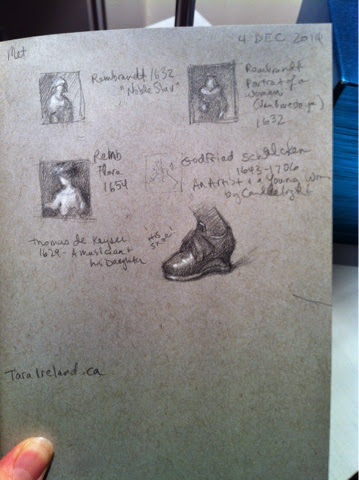 Met
4 DEC 2014
Rembrandt 1632
"Noble Slav"
Rembrandt
Portrait of a
Woman
1632
Remb
Flora
1654
Godfried Schalcken
1643-1706
An Artist + a Young Wom
by Candlelight
Thomas de Keyser
1629 - A musician +
his Daughter
his
shoe!
TaraIreland.ca